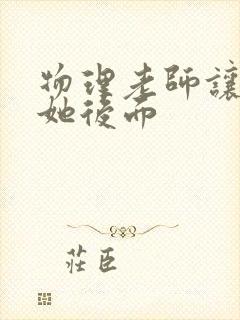 物理老師讓
她後而
莊臣